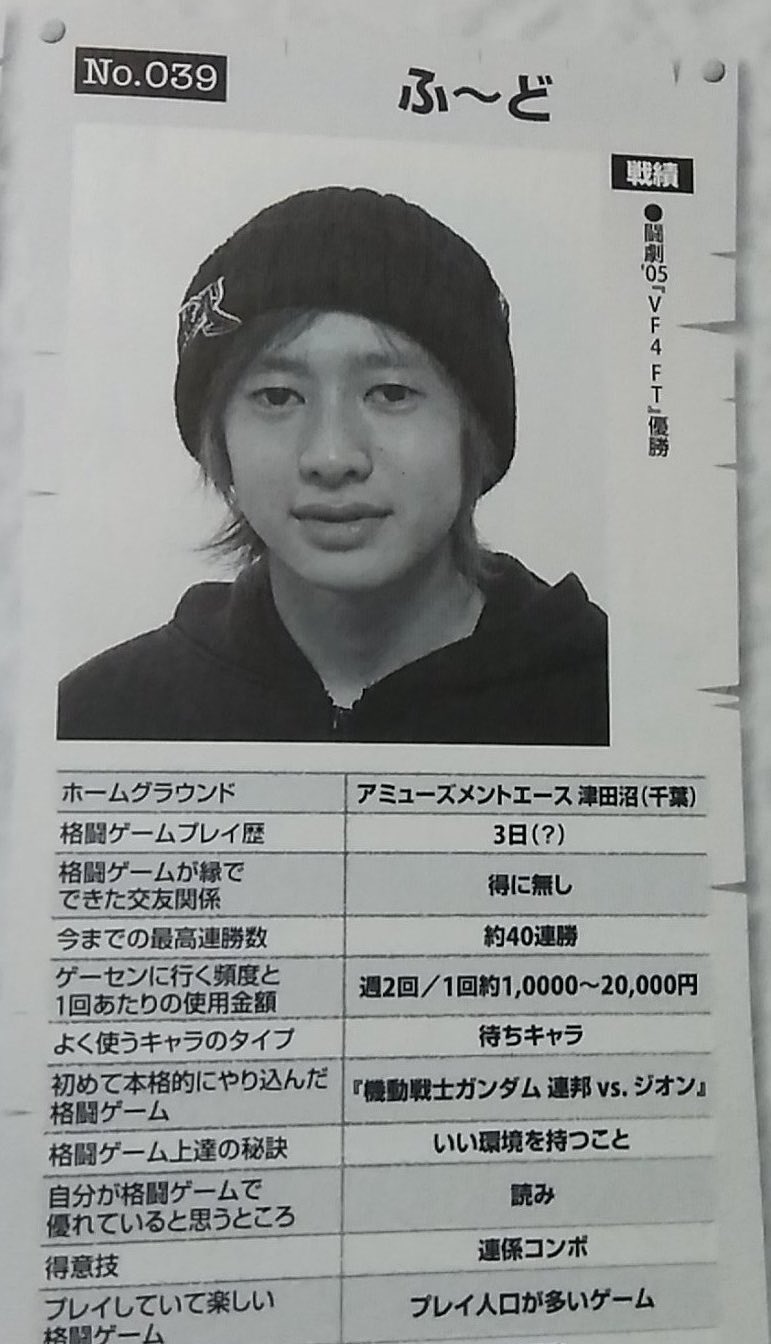 No.039
ふ～ど
戦績
●闘劇'05『VF4FT』優勝
ホームグラウンド
アミューズメントエース 津田沼(千葉)
格闘ゲームプレイ歴
3日(?)
格闘ゲームが縁で
できた交友関係
得に無し
今までの最高連勝数
約40連勝
ゲーセンに行く頻度と
1回あたりの使用金額
週2回/1回約1,0000～20,000円
よく使うキャラのタイプ
待ちキャラ
初めて本格的にやり込んだ
格闘ゲーム
『機動戦士ガンダム 連邦 vs. ジオン』
格闘ゲーム上達の秘訣
いい環境を持つこと
自分が格闘ゲームで
優れていると思うところ
読み
得意技
連係コンボ
プレイしていて楽しい
格闘ゲーム
プレイ人口が多いゲーム